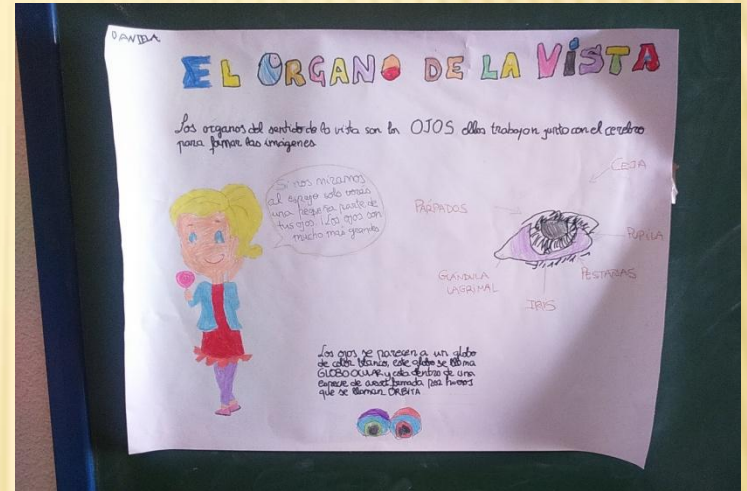 DANIELA
EL ORGANO DE LA VISTA
Los organos del sentido de la vista son los OJOS ellos trabajan junto con el cerebro
para formar las imágenes
Si nos miramos
al espejo solo verás
una pequeña parte de
tus ojos. ¡Los ojos son
mucho más grandes
CEJA
PARPADOS
PUPILA
PESTAÑAS
GLANDULA
LAGRIMAL
IRIS
Los ojos se parecen a un globo
de color blanco, este globo se llama
GLOBO OCULAR y esta dentro de una
especie de formada por huesos
que se llaman ORBITA